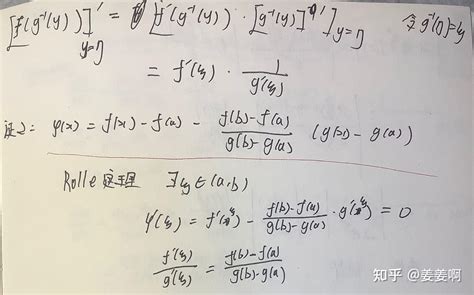 [f(g⁻¹(y))]'_{y=η} = [f'(g⁻¹(y)) · [g⁻¹(y)]']_{y=η} 令g⁻¹(η)=ξ
= f'(ξ) · 1/g'(ξ)
证2: φ(x) = f(x) - f(a) - (f(b)-f(a))/(g(b)-g(a)) (g(x) - g(a))
Rolle定理 ∃ξ∈(a,b)
φ'(ξ) = f'(ξ) - (f(b)-f(a))/(g(b)-g(a)) · g'(ξ) = 0
f'(ξ)/g'(ξ) = (f(b)-f(a))/(g(b)-g(a))
知乎 @姜姜啊